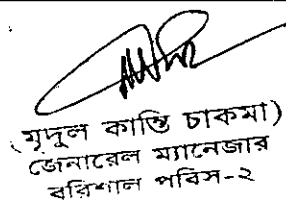 (মৃদুল কান্তি চাকমা)
জেনারেল ম্যানেজার
বরিশাল পবিস-২